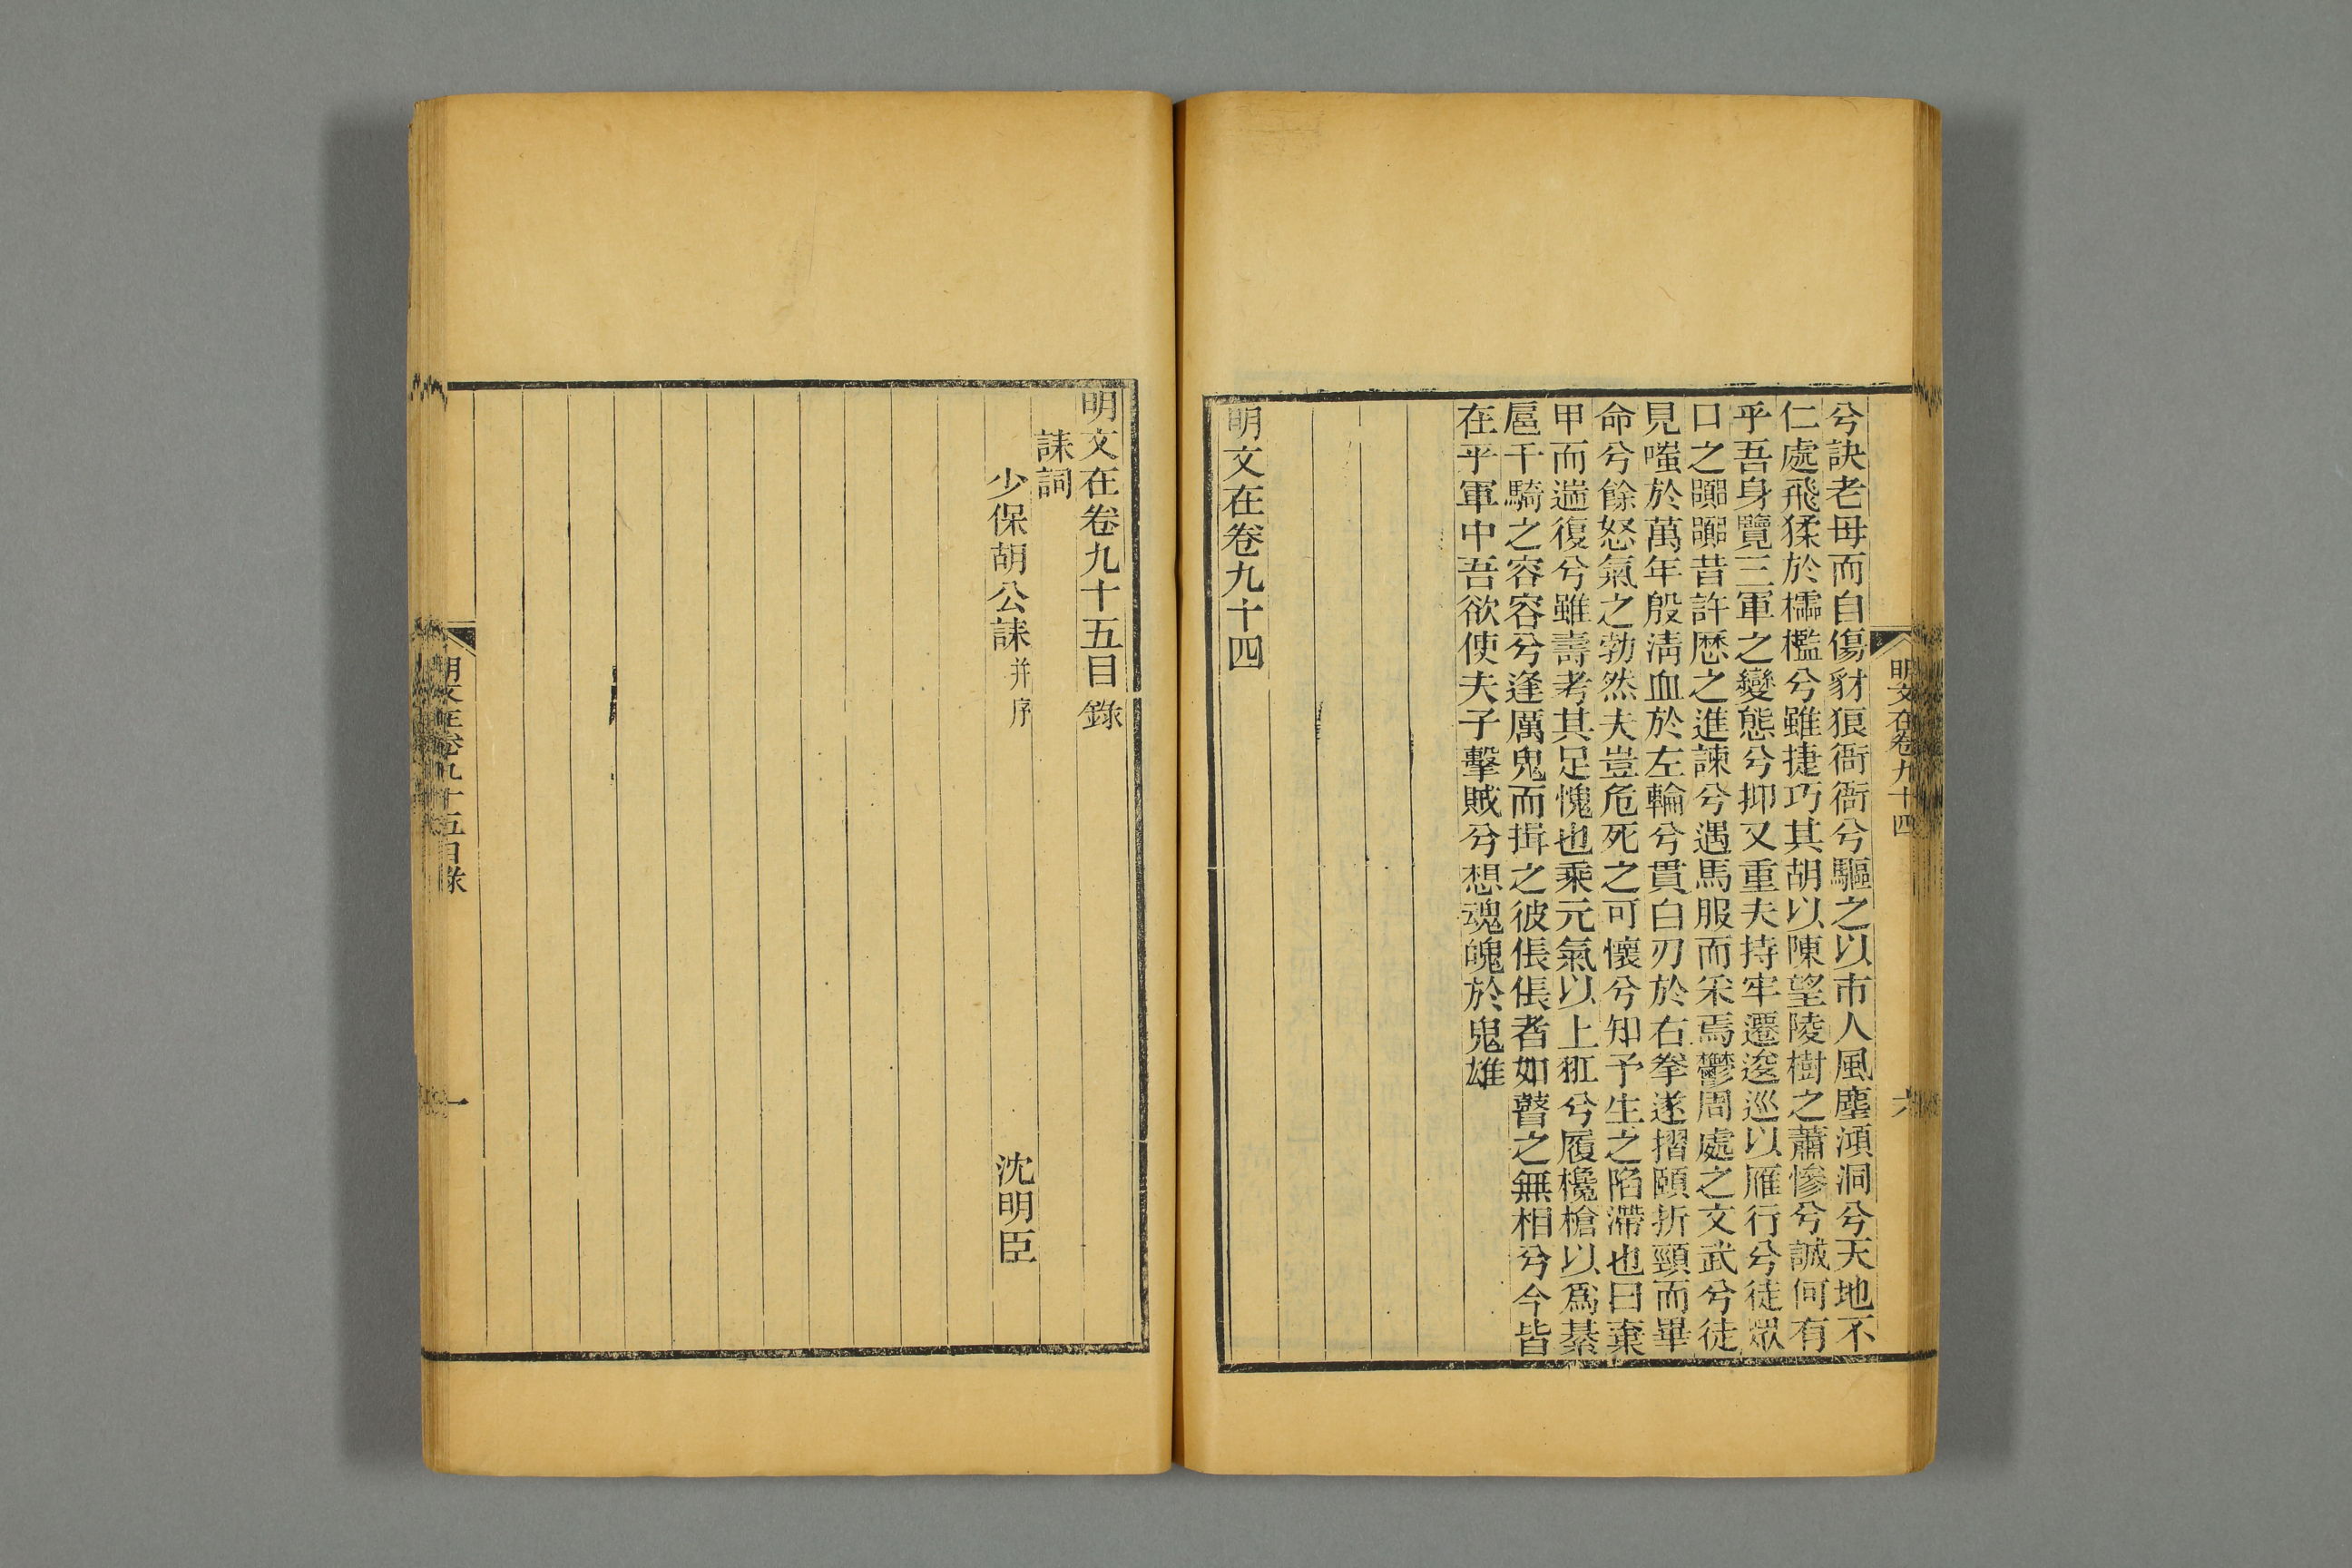 明文在卷九十四
六
兮訣老母而自傷豺狼衙衙兮驅之以市人風塵澒洞兮天地不
仁處飛猱於櫺檻兮雖捷巧其胡以陳望陵樹之蕭慘兮誠何有
乎吾身覽三軍之變態兮抑又重夫持牢遷逡巡以雁行兮徒眾
口之嚻嚻昔許歷之進諫兮遇馬服而采焉鬱周處之文武兮徒
見嗤於萬年殷淸血於左輪兮貫白刃於右拳遂摺頤折頸而畢
命兮餘怒氣之勃然夫豈危死之可懷兮知予生之陷滯也曰棄
甲而遄復兮雖壽考其足愧也乘元氣以上征兮履欃槍以爲綦
扈千騎之容容兮逢厲鬼而揖之彼倀倀者如瞽之無相兮今皆
在乎軍中吾欲使夫子擊賊兮想魂魄於鬼雄
明文在卷九十四
明文在卷九十五目錄
誄詞
少保胡公誄并序 沈明臣
明文在卷九十五目錄
一